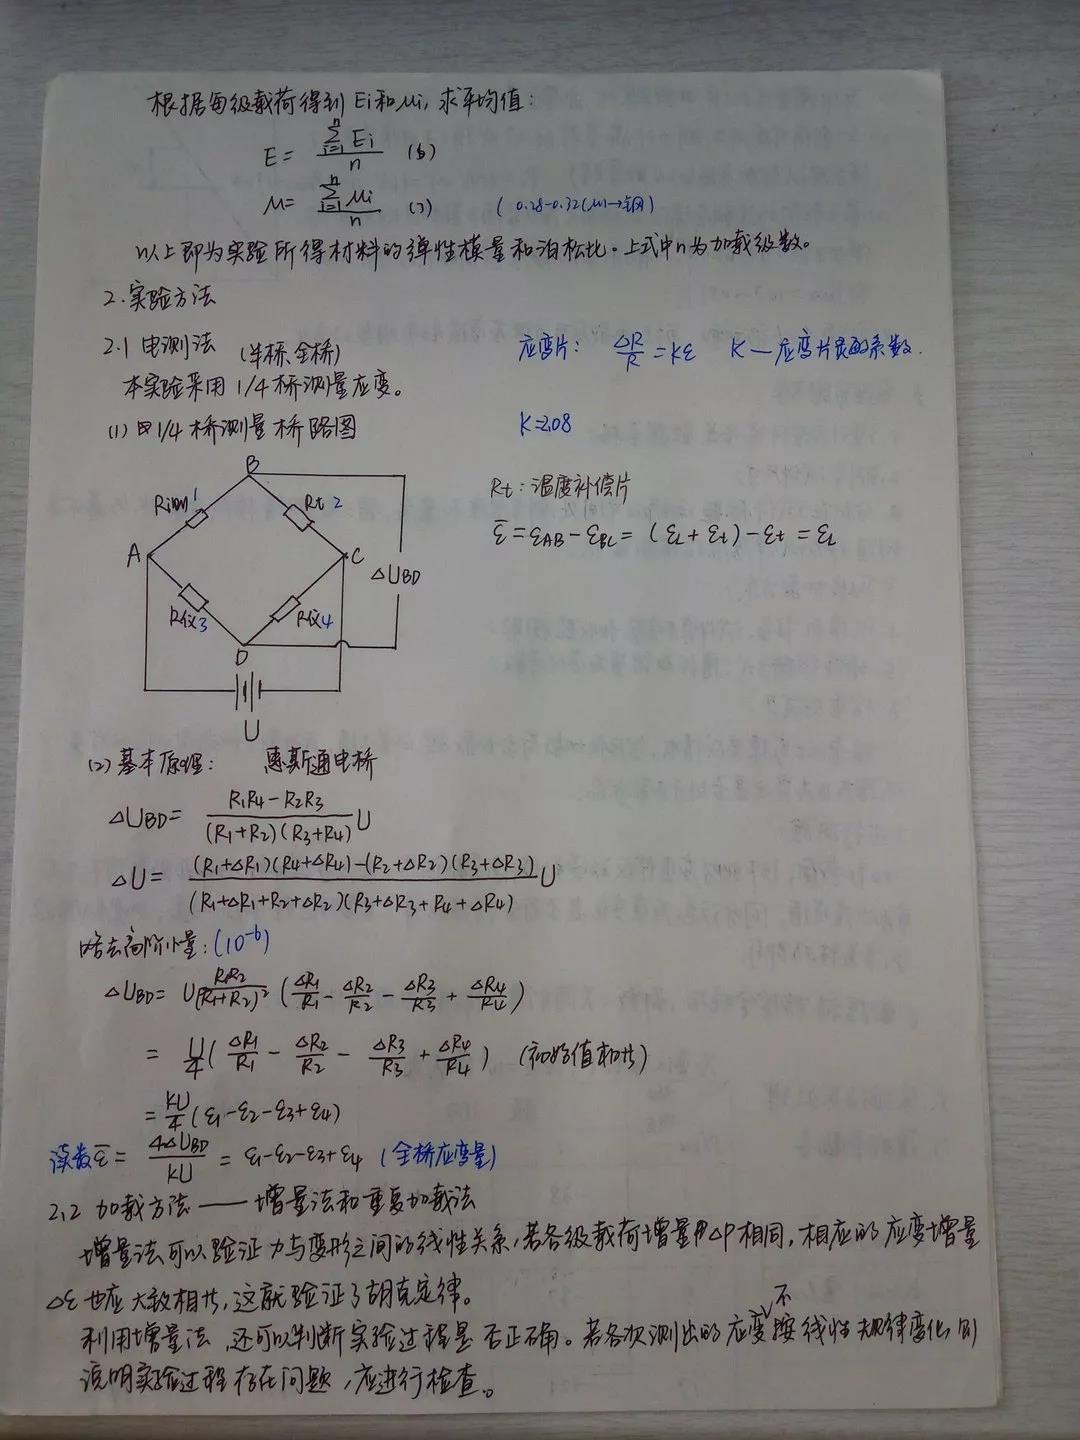 根据每级载荷得到 Ei和μi, 求平均值:
E= Σ(i=1→n) Ei / n (6)
μ= Σ(i=1→n) μi / n (7) (0.28-0.32(μ)→钢)
以上即为实验所得材料的弹性模量和泊松比。上式中n为加载级数。
2.实验方法
2.1 电测法 (半桥、全桥) 应变片: ΔR/R =Kε K—应变片灵的系数.
本实验采用 1/4桥测量应变。
(1) 1/4桥测量桥路图 K=2.08
B
1 Rt 2 Rt:温度补偿片
A C ΔUBD ε̄=εAB-εBC=(εL+εt)-εt=εL
R仪3 R仪4
D
U
(2)基本原理: 惠斯通电桥
ΔUBD= (R1R4-R2R3) / (R1+R2)(R3+R4) U
ΔU= (R1+ΔR1)(R4+ΔR4)-(R2+ΔR2)(R3+ΔR3) / (R1+ΔR1+R2+ΔR2)(R3+ΔR3+R4+ΔR4) U
略去高阶小量:(10⁻⁶)
ΔUBD= U R1R2/(R1+R2)² (ΔR1/R1 - ΔR2/R2 - ΔR3/R3 + ΔR4/R4)
= U/4 (ΔR1/R1 - ΔR2/R2 - ΔR3/R3 + ΔR4/R4) (初始值相等)
= KU/4 (ε1-ε2-ε3+ε4)
读数ε̄= 4ΔUBD/KU = ε1-ε2-ε3+ε4 (全桥应变量)
2.2 加载方法——增量法和重复加载法
增量法可以验证力与变形之间的线性关系,若各级载荷增量ΔP相同,相应的应变增量
Δε也应大致相等,这就验证了胡克定律。
利用增量法,还可以判断实验过程是否正确。若各次测出的应变不按线性规律变化,则
说明实验过程存在问题,应进行检查。